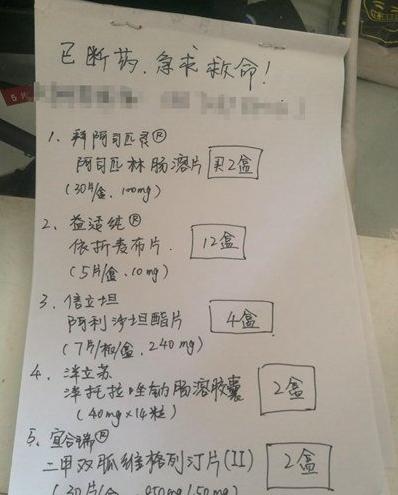 已断药，急求救命！
1、拜阿司匹灵®
阿司匹林肠溶片 2盒
(30片/盒、100mg)
2、益适纯®
依折麦布片. 12盒
(5片/盒、10mg)
3、信立坦
阿利沙坦酯片 4盒
(7片/板/盒、240mg)
4、泮立苏
泮托拉唑钠肠溶胶囊 2盒
(40mg×14粒)
5、宜合瑞®
二甲双胍维格列汀片(II) 2盒
(30片/盒、850mg/50mg)